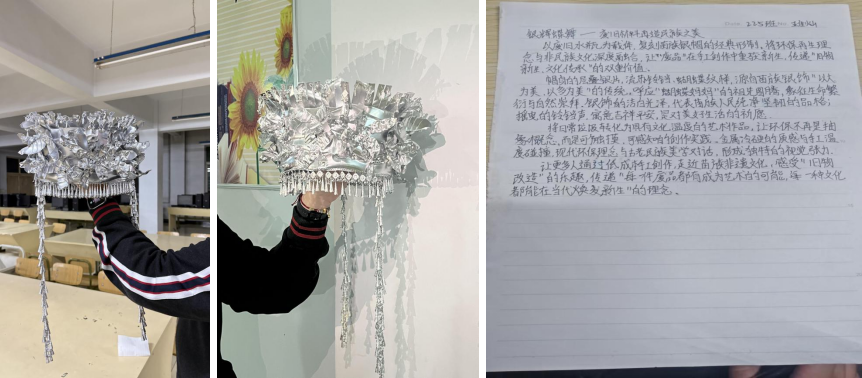 银辉蝶舞——废旧材料再造民族之美
以废旧水瓶为载体，复刻苗族银帽的经典形制，将环保再生理
念与非民族文化深度融合，让“废品”在手工创作中重获新生，传递“旧物
新生，文化传承”的双重价值。
帽身的层叠银片、流苏转铃，蝴蝶纹样，源自苗族“银饰”以大
为美，以多为美”的传统，呼应“蝴蝶妈妈”的祖先图腾，象征生命繁
衍与自然崇拜，银饰的洁白光泽，代表苗族人民纯净坚韧的品格；
摇曳的铃铛声，寓意吉祥平安，是对美好生活的祈愿。
将日常垃圾转化为具有文化温度的艺术作品。让环保不再是抽
象概念，而是可触摸、可感知的创作实践。金属冷硬的质感与手工温
度碰撞，现代环保理念与古老民族美学对话，形成独特的视觉张力。
让更多人通过低成本手工创作，走近苗族非遗文化，感受“旧物
改造”的乐趣，传递“每一件废品都有成为艺术的可能，每一种文化
都能在当代焕发新生”的理念。